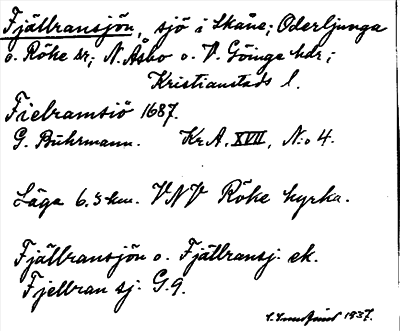 Fjällransjön, sjö i Skåne; Oderljunga
o. Röke sr; N. Åsbo o. V. Göinge hdr;
Kristianstads l.
Fielramsiö 1687.
G. Buhrmann. Kr.A. XVII, N:o 4.
Läge 6.5 km. VNV Röke kyrka.
Fjällransjön o. Fjällransj. ek.
Fjellran sj. G.9.
1937.